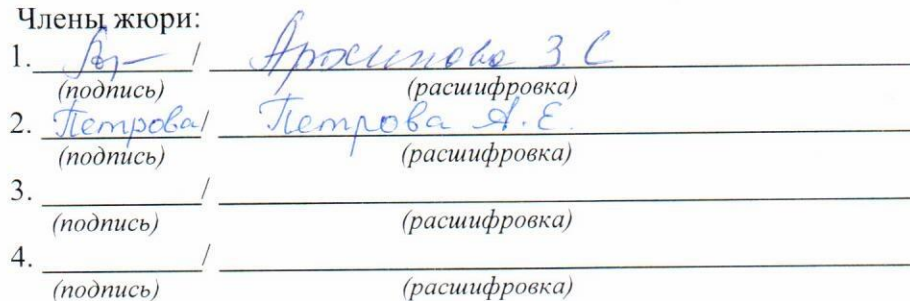 Члены жюри:
1. / Архипова З. С
(подпись) (расшифровка)
2. Петрова / Петрова А. Е.
(подпись) (расшифровка)
3. /
(подпись) (расшифровка)
4. /
(подпись) (расшифровка)